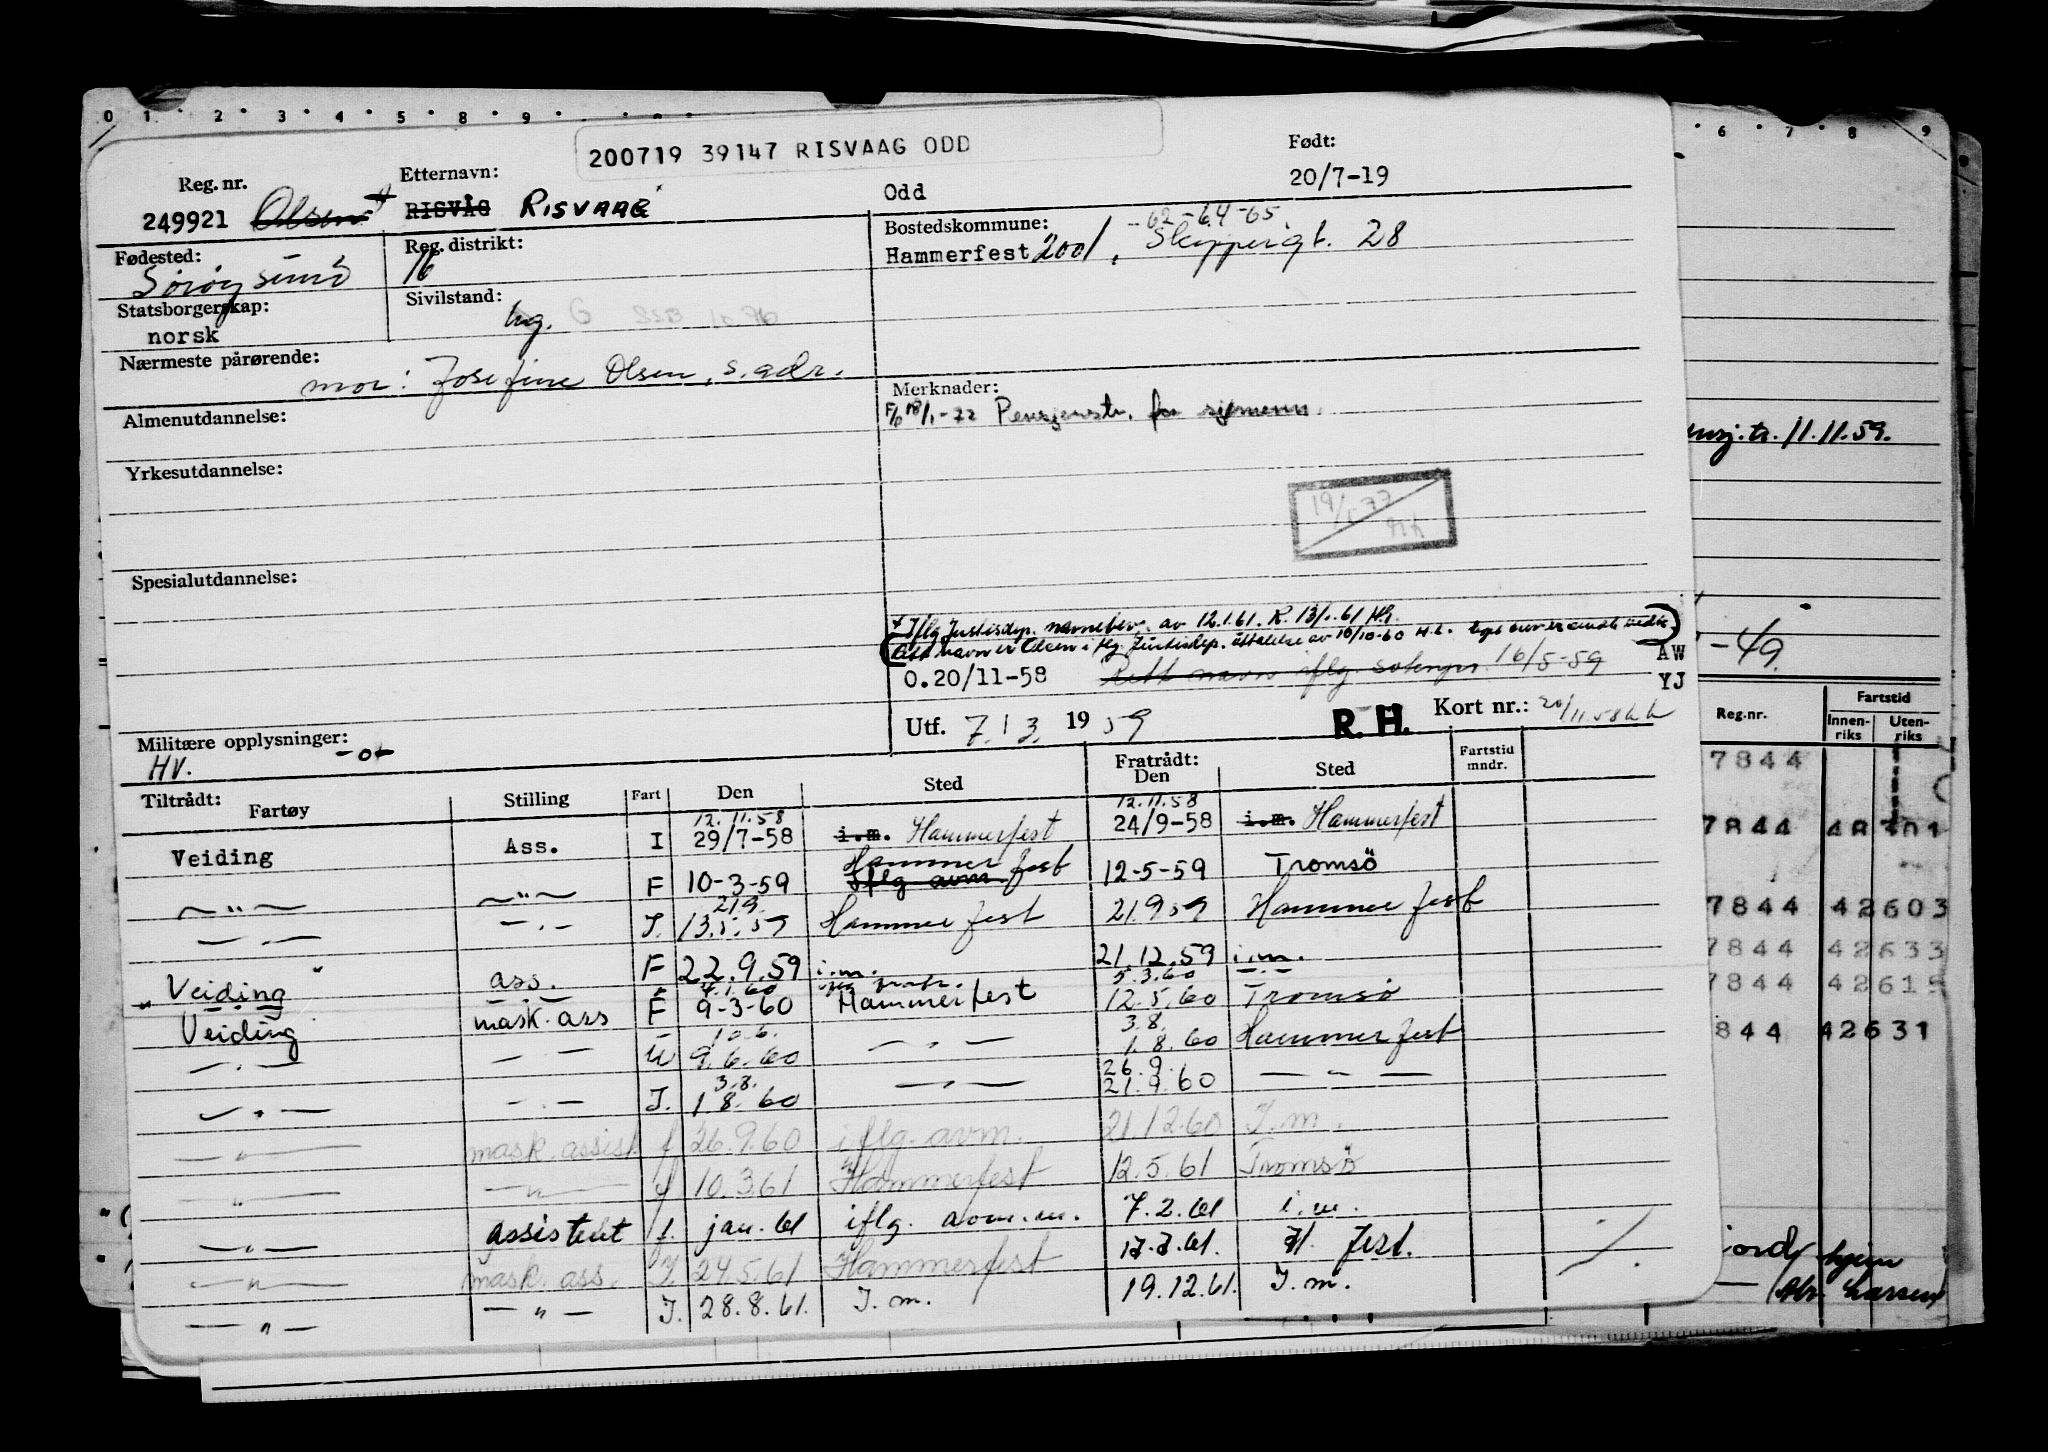 0 1 2 3 4 5 8 9
200719 39147 RISVAAG ODD
Reg. nr. Etternavn: Født:
249921 Olsen RISVÅG RISVAAG Odd 20/7-19
Fødested: Reg. distrikt: Bostedskommune: -62-64-65
Sørøysund 16 Hammerfest 2001, Skippergt. 28
Statsborgerskap: Sivilstand:
norsk ug. G
Nærmeste pårørende:
mor: Josefine Olsen, s. adr.
Merknader:
18/1-72 Pensjonstr. for sjømenn.
Almenutdannelse:
Yrkesutdannelse:
Spesialutdannelse:
+ Iflg Justisdep. navnebev. av 12.1.61. R. 13/1.61
Rett navn er Olsen iflg. Justisdep. uttalelse av 10/10-60
O.20/11-58 Rett navn iflg. 16/5-59 AW
YJ
Utf. 7.3. 1959 R. H. Kort nr.: 20/11 58
Militære opplysninger:
HV. -o-
Tiltrådt: Fartøy Stilling Fart Den Sted Fratrådt: Den Sted Fartstid mndr.
12.11.58 12.11.58
Veiding Ass. I 29/7-58 i.m. Hammerfest 24/9-58 i.m. Hammerfest
— " — — " — F 10-3-59 Iflg avm. Hammerfest 12-5-59 Tromsö
21.9.
— " — — " — I. 13.5.59 Hammerfest 21.9 59 Hammerfest
Veiding ass. F 22.9.59 i.m. 21.12.59 i.m.
4.1.60 5.3.60 — " —
Veiding mask. ass F 9-3-60 Hammerfest 12.5.60 Tromsø
10.6. 3.8.
— " — — " — U 9.6.60 — " — 1.8.60 Hammerfest
3.8. 26.9.
— " — — " — I. 1.8.60 — " — 21.9.60 — " —
— " — mask. assist f 26.9.60 iflg. avm. 21.12.60 I.m.
— " — — " — f 10.3.61 Hammerfest 12.5.61 Tromsö
— " — assistent f. jan. 61 iflg. 7.2.61 i.m.
— " — mask. ass. I 24.5.61 Hammerfest 17.7.61. H. fest.
— " — — " — I. 28.8.61. I.m. 19.12.61. I.m.
6 7 8 9
11.11.59.
-49.
Reg.nr. Fartstid
Innenriks Utenriks
7844
7844 48701
7844 42603
7844 42633
7844 42615
844 42631
hjem
Larsen